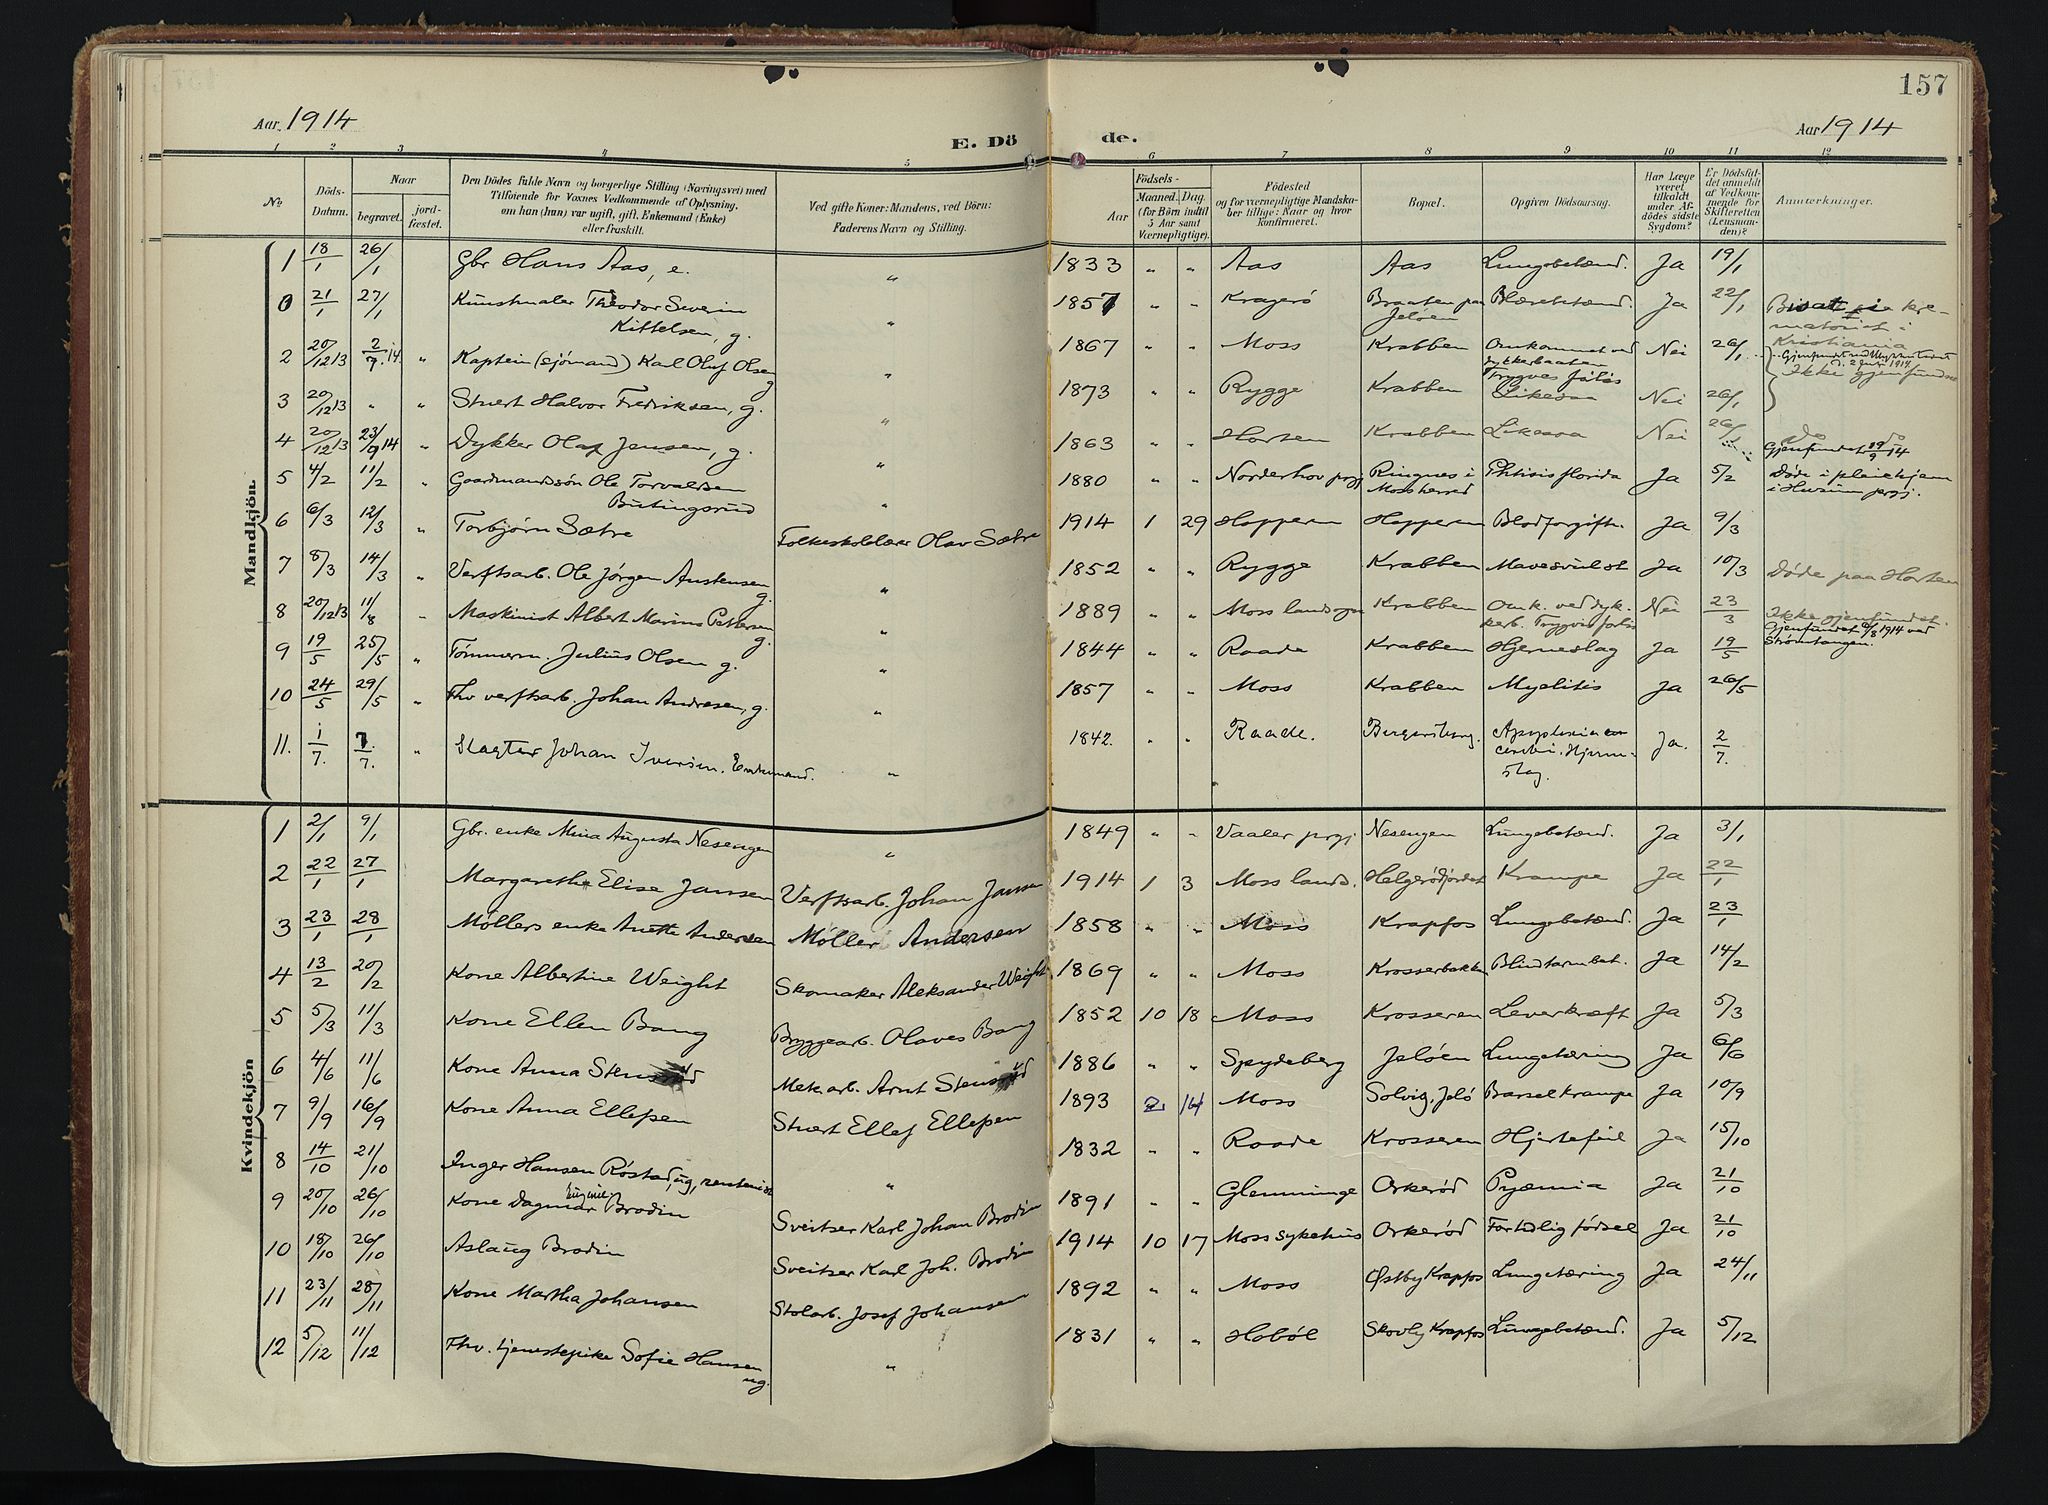 157
Aar 1914
E. Dö de.
Aar 1914
1 2 3 4 5 6 7 8 9 10 11 12
No.
Döds-Datum.
Naar
begravet.
jord-fæstet.
Den Dödes fulde Navn og borgerlige Stilling (Næringsvei) med
Tilföiende for Voxnes Vedkommende af Oplysning,
om han (hun) var ugift, gift, Enkemand (Enke)
eller fraskilt.
Ved gifte Koner: Mandens, ved Börn:
Faderens Navn og Stilling.
Födsels-
Aar
Maaned. Dag.
(for Börn indtil
5 Aar samt
Værnepligtige).
Födested
og for værnepligtige Mandska-
ber tillige: Naar og hvor
konfirmeret.
Bopæl.
Opgiven Dödsaarsag.
Har Læge
været
tilkaldt
under Af-
dödes sidste
Sygdom?
Er Dödsfal-
det anmeldt
af Vedkom-
mende for
Skifteretten
(Lensman-
den)?
Anmærkninger.
Mandkjön.
1 18/1 26/1 Gbr Hans Aas, e. " 1833 " " Aas Aas Lungebetænd. Ja 19/1
0 21/1 27/1 Kunstmaler Theodor Severin Kittelsen, g. " 1857 " " Kragerö Braaten paa Jelöen Blærebetænd. Ja 22/1 Bisat i kre-
matoriet i
Kristiania
2 20/12 13 2/7 14 " Kaptein (sjömand) Karl Oluf Olsen g. " 1867 " " Moss Krabben Omkommet ved dykkerbaaten Trygves forlis Nei 26/1 Gjenfundet 2 Juli 1914
Ikke gjenfundet
3 20/12 13 " " Stuert Halvor Fredriksen, g. " 1873 " " Rygge Krabben Likesaa Nei 26/1
4 20/12 13 23/9 14 " Dykker Olaf Jensen, g. " 1863 " " Horten Krabben Likesaa Nei 26/1 Do Do
Gjenfundet 19/9 14
5 4/2 11/2 " Gaardmandssön Ole Torvaldsen Butingsrud " 1880 " " Norderhov prgj Ringnes i Moss herred Phtisis florida Ja 5/2 Døde i pleiehjem
i Hurum prgj.
6 6/3 12/3 " Torbjørn Sætre Folkeskolelærer Olav Sætre 1914 1 29 Hoppern Hoppern Blodforgiftn. Ja 9/3
7 8/3 14/3 " Verftsarb. Ole Jørgen Anstensen g. " 1852 " " Rygge Krabben Mavesvulst Ja 10/3 Døde paa Horten
8 20/12 13 11/8 " Maskinist Albert Marius Pettersen g. " 1889 " " Moss landsogn Krabben Omk. ved dyk-kerb. Trygves forlis Nei 23/3 Ikke gjenfundet.
Gjenfundet 9/8 1914 ved
Strømtangen.
9 19/5 25/5 " Tømmerm. Julius Olsen g. " 1844 " " Raade Krabben Hjerneslag Ja 19/5
10 24/5 29/5 " Fhv verftsarb. Johan Andresen, g. " 1857 " " Moss Krabben Myelitis Ja 26/5
11. 1/7. 7/7. " Slagter Johan Iversen. Enkemand. " 1842. " " Raade. Apoplexia cerebri. Hjerne-slag. Ja. 2/7.
Kvindekjön
1 2/1 9/1 Gbr. enke Mina Augusta Nesengen " 1849 " " Vaaler prgj. Nesengen Lungebetænd. Ja 3/1
2 22/1 27/1 Margarethe Elise Jansen Verftsarb. Johan Jansen 1914 1 3 Moss lands. Helgerødjordet Krampe Ja 22/1
3 23/1 28/1 Møllers enke Anette Andersen Møller Andersen 1858 " " Moss Krapfos Lungebetænd. Ja 23/1
4 13/2 20/2 Kone Albertine Weight Skomaker Aleksander Weight 1869 " " Moss Krosserbakken Blindtarmbet. Ja 14/2
5 5/3 11/3 Kone Ellen Bang Bryggearb. Olaves Bang 1852 10 18 Moss Krosseren Leverkræft Ja 5/3
6 4/6 11/6 Kone Anna Mek arb. Arnt 1886 " " Spydeberg Jeløen Lungetæring Ja 6/6
7 9/9 16/9 Kone Anna Ellefsen Stuert Ellef Ellefsen 1893 2 14 Moss Solvig, Jelö Barselkrampe Ja 10/9
8 14/10 21/10 Inger Hansen Røstad, ug, rentenist " 1832 " " Raade Krosseren Hjertefeil Ja 15/10
9 20/10 26/10 Kone Dagmar Eugenie Brodin Sveitser Karl Johan Brodin 1891 " " Glemminge Orkerød Pyæmia Ja 21/10
10 18/10 26/10 Aslaug Brodin Sveitser Karl Joh. Brodin 1914 10 17 Moss sykehus Orkerød Fortidlig fødsel Ja 21/10
11 23/11 28/11 Kone Martha Johansen Stolarb. Josef Johansen 1892 " " Moss Østby Krapfos Lungetæring Ja 24/11
12 5/12 11/12 Fhv. tjenestepike Sofie Hansen ug. " 1831 " " Hobøl Skovly Krapfos Lungebetænd. Ja 5/12